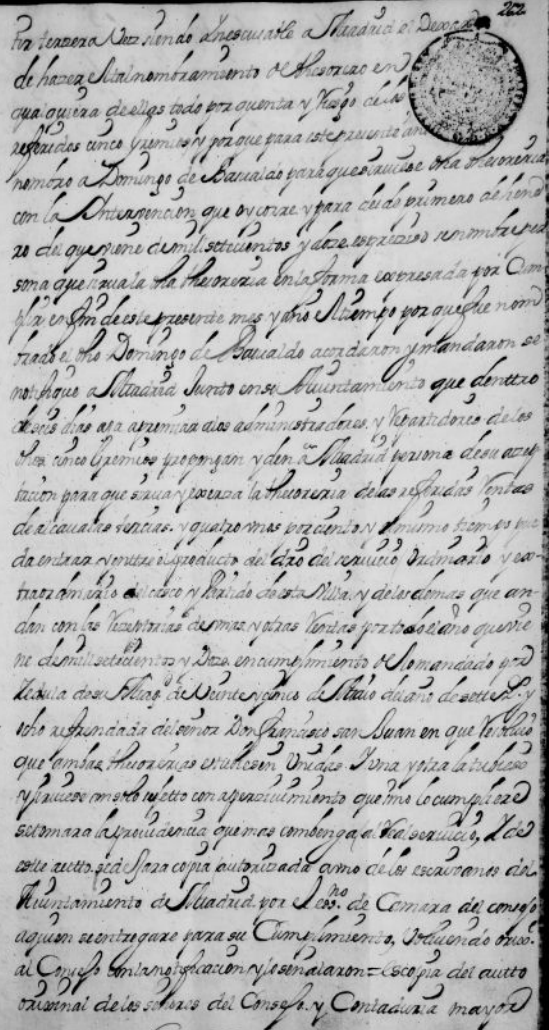 262
por terzera Vez siendo a
de hazer el tal nombramiento de thesorero en
qualquiera de ellas todo por quenta y riesgo de los
referidos cinco gremios y porque para este presente año
nombro a Domingo de Basualdo para que sirviese dha thesoreria
con la Yntervencion que oy corre y para desde primero de hene
ro del que viene de mil setecientos y doze es preziso se nombre per
sona que sirua la dha thesoreria en la forma expresada por Cum-
plir en fin de este presente mes y año el tiempo por que fue nom
brado el dho Domingo de Basualdo acordaron y mandaron se
notifique a Madrid Junto en su Ayuntamiento que denttro
de seis dias aga apremiar a los administradores y Repartidores de los
dhos cinco Gremios propongan y den a Madrid persona de su azep
tacion para que sirua y exerza la thesoreria de las referidas Rentas
de alcaualas tercias y quatro unos por ciento y al mismo tiempo pue
da entrar y enttre el producto del dro del seruicio Ordinario y ex-
traordinario del casco y Partido de esta Villa y de los demas que an-
dan con las Rezeptorias de mas y otras Rentas por todo el año que vie
ne de mil setecientos y Doze en cumplimiento de lo mandado por
Zedula de su Magd de Veinte y cinco de Maio del año de settezs y
ocho refrendada del señor Don francisco san Juan en que Resoluio
que ambas thesorerias estubiesen Unidas Y una y otra la tubiese
y siruiese un solo sujetto con aperzivimiento que no lo cumpliere
se tomara la prouidencia que mas combenga al Real seruicio, Y de
este autto se de copia autorizada a uno de los escriuanos del
Ayuntamiento de Madrid por el essno de Camara del consejo
a quien se entregare para su Cumplimiento, Voluiendo orixl
al Consejo con la notificacion y lo señalaron = Es copia del autto
orixinal de los señores del Consejo y Contaduria mayor